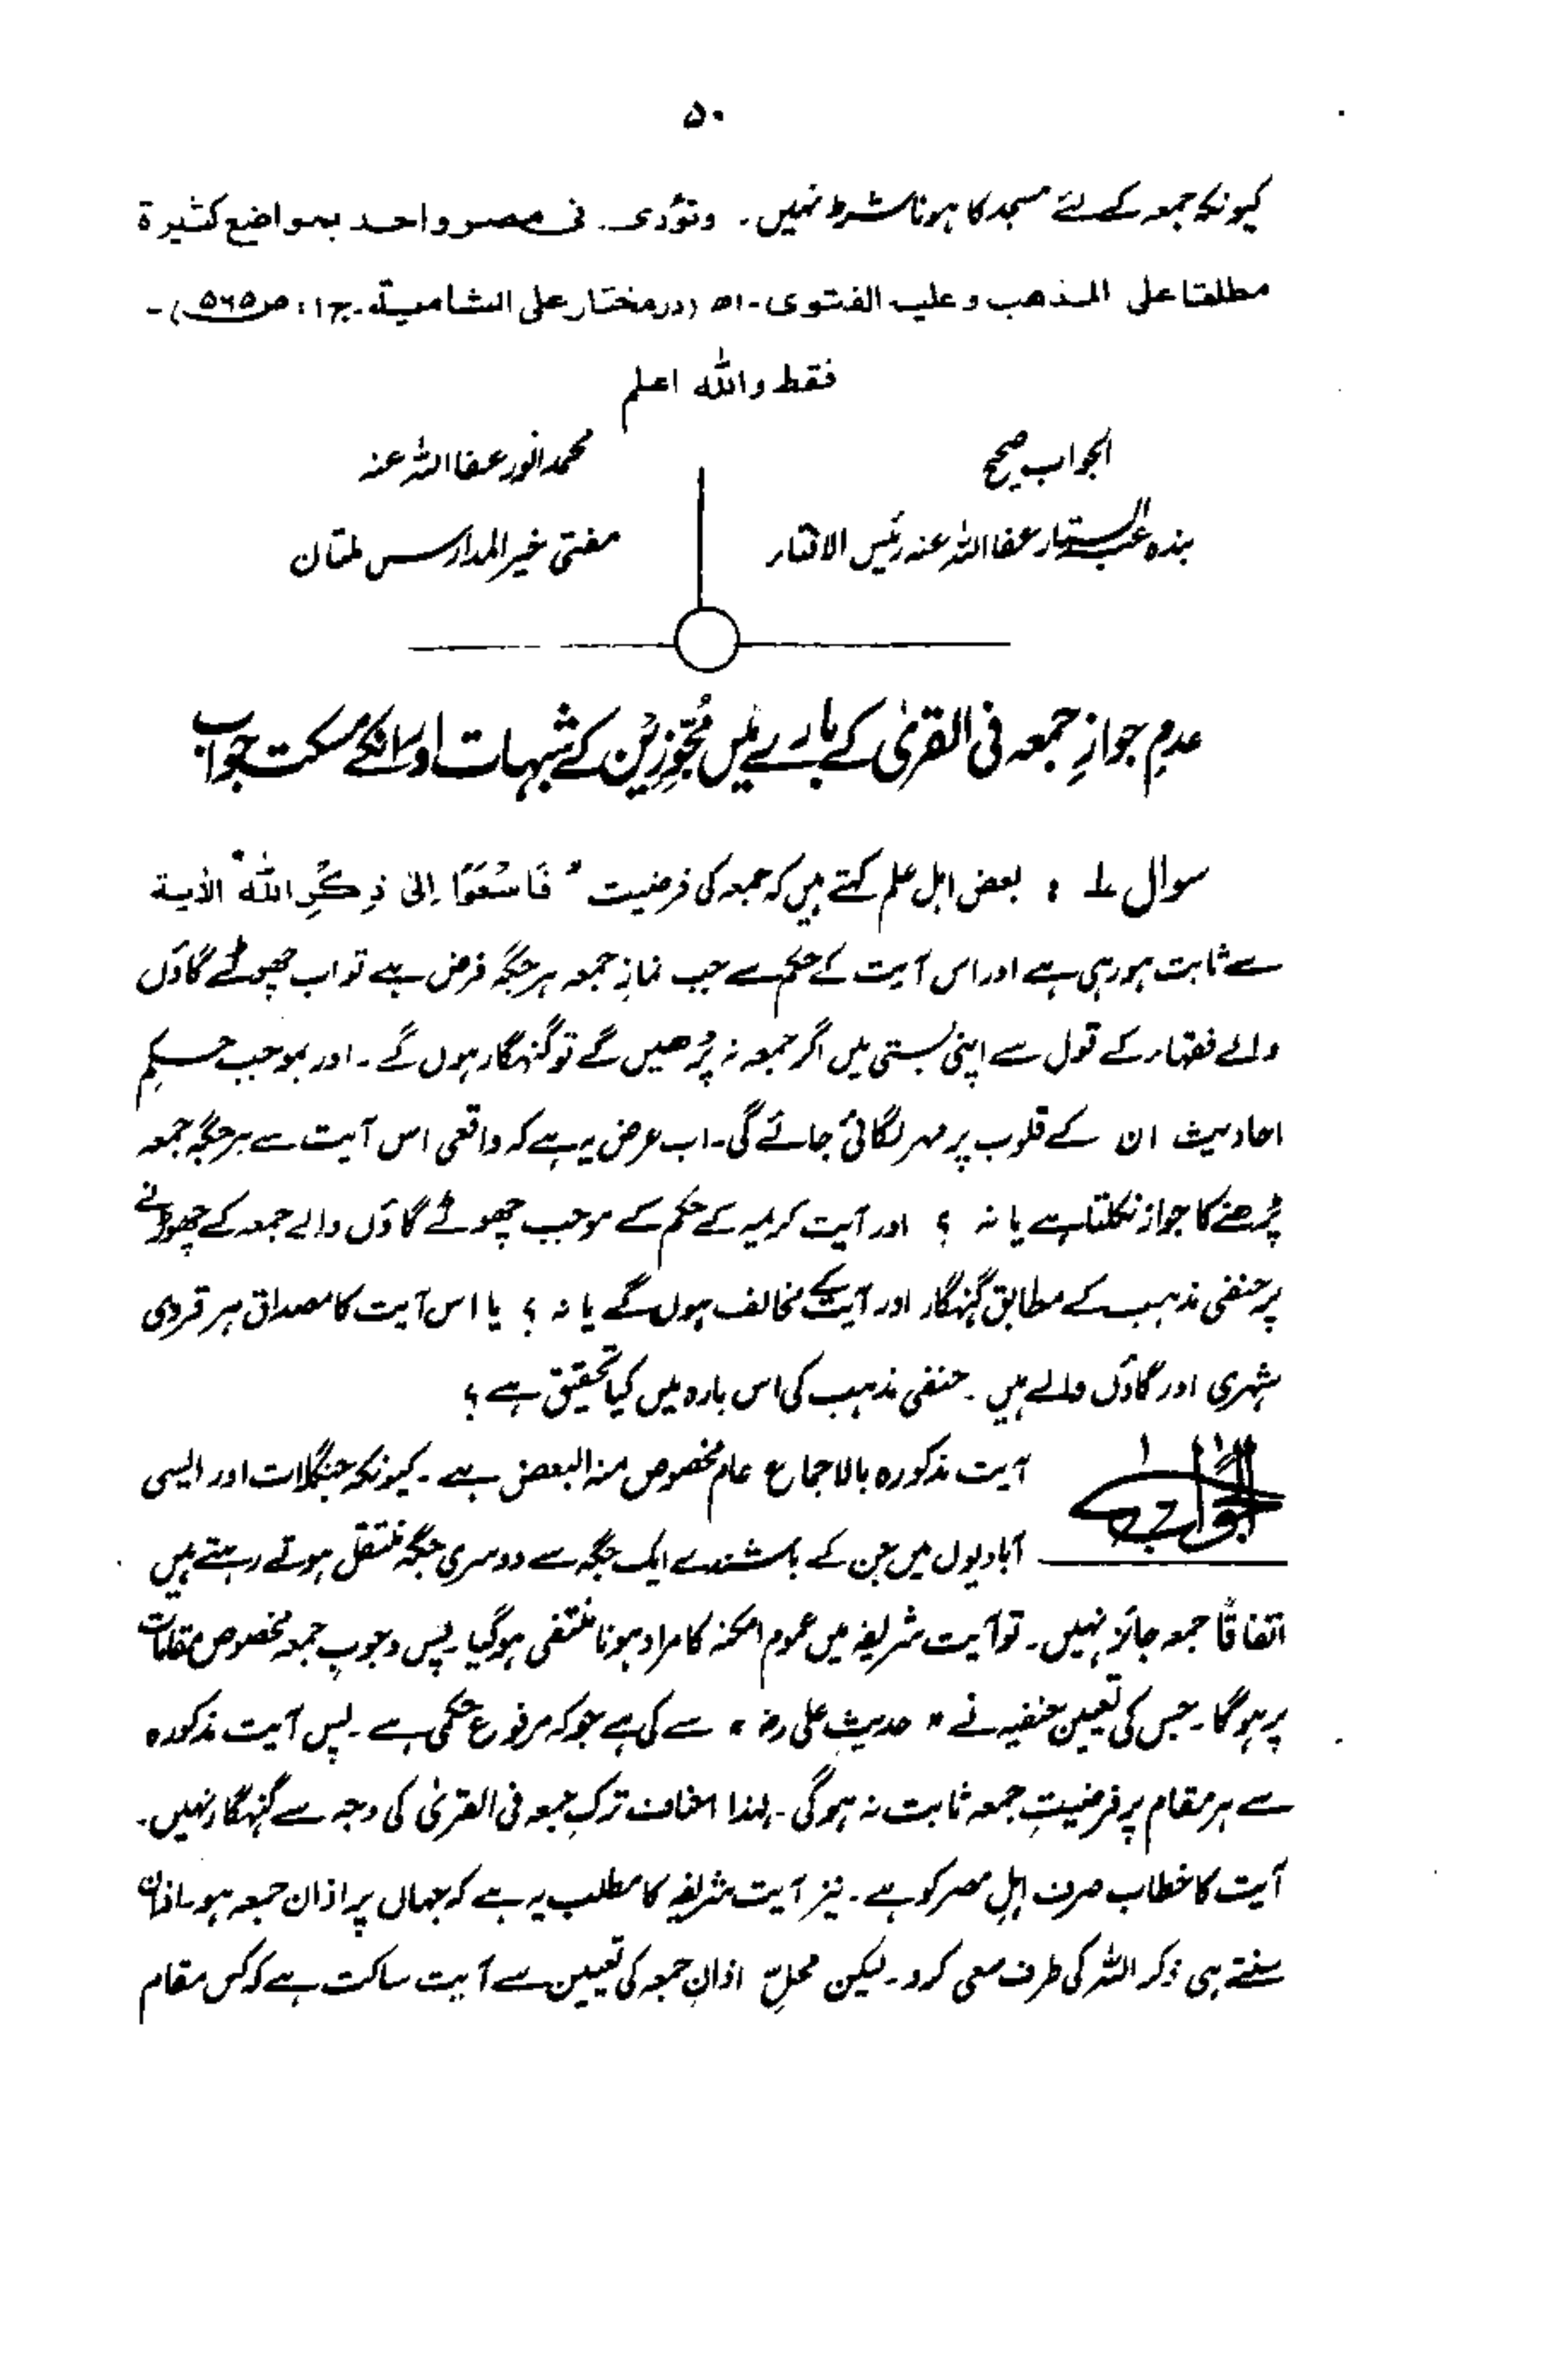 ۵۰
کیونکہ جمعہ کے لئے مسجد کا ہونا شرط نہیں۔ وتؤدی فی مصر واحد بمواضع کثیرة
مطلقا علی المذهب وعلیه الفتوی۔ اھ (درمختار علی الشامیة۔ ج۱: ص۵۶۵)۔
فقط واللہ اعلم
الجواب صحیح
محمد انور عفا اللہ عنہ
بندہ عبدالستار عفا اللہ عنہ رئیس الافتاء
مفتی خیر المدارس ملتان
عدمِ جوازِ جمعہ فی القریٰ کے بارے میں مُجَوِّزِیْن کے شبہات اور انکے مسکت جواب
سوال ۱ : بعض اہل علم کہتے ہیں کہ جمعہ کی فرضیت "فَاسْعَوْا اِلٰی ذِکْرِ اللّٰہِ" الآیة
سے ثابت ہو رہی ہے اور اس آیت کے حکم سے جب نمازِ جمعہ ہر جگہ فرض ہے تو اب چھوٹے گاؤں
والے فقہاء کے قول سے اپنی بستی میں اگر جمعہ نہ پڑھیں گے تو گنہگار ہوں گے۔ اور بموجب حکمِ
احادیث ان کے قلوب پر مہر لگائی جائے گی۔ اب عرض یہ ہے کہ واقعی اس آیت سے ہر جگہ جمعہ
پڑھنے کا جواز نکلتا ہے یا نہ ؟ اور آیت کریمہ کے حکم کے موجب چھوٹے گاؤں والے جمعہ کے چھوڑنے
پر حنفی مذہب کے مطابق گنہگار اور آیت کے مخالف ہوں گے یا نہ ؟ یا اس آیت کا مصداق ہر قروی
شہری اور گاؤں والے ہیں۔ حنفی مذہب کی اس بارہ میں کیا تحقیق ہے ؟
الجواب آیت مذکورہ بالاجماع عام مخصوص منہ البعض ہے۔ کیونکہ جنگلات اور ایسی
آبادیوں میں جن کے باشندے ایک جگہ سے دوسری جگہ منتقل ہوتے رہتے ہیں
اتفاقاً جمعہ جائز نہیں۔ تو آیت شریفہ میں عموم امکنہ کا مراد ہونا منتفی ہو گیا۔ پس وجوبِ جمعہ مخصوص مقامات
پر ہوگا۔ جس کی تعیین حنفیہ نے "حدیثِ علی رض" سے کی ہے جو کہ مرفوع حکمی ہے۔ پس آیت مذکورہ
سے ہر مقام پر فرضیتِ جمعہ ثابت نہ ہوگی۔ لہٰذا احناف ترکِ جمعہ فی القریٰ کی وجہ سے گنہگار نہیں۔
آیت کا خطاب صرف اہلِ مصر کو ہے۔ نیز آیت شریفہ کا مطلب یہ ہے کہ جہاں پر اذان جمعہ ہو۔ اذان
سنتے ہی ذکر اللہ کی طرف سعی کرو۔ لیکن محلِّ اذانِ جمعہ کی تعیین سے آیت ساکت ہے کہ کس مقام